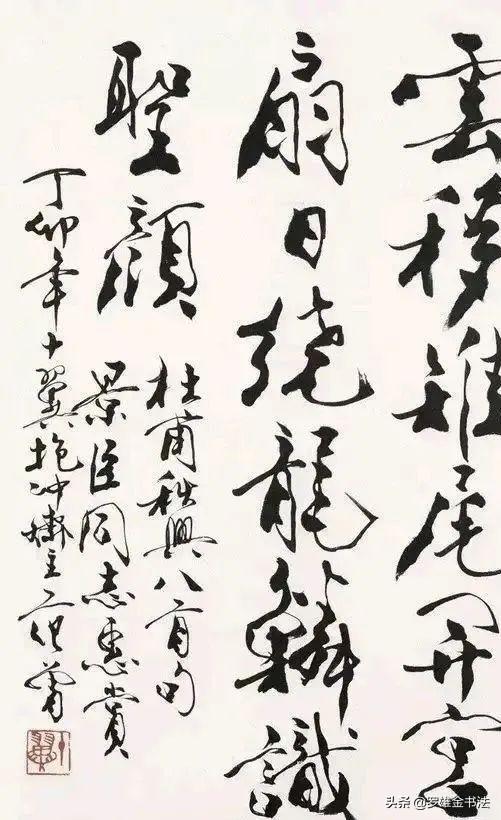 雲移雉尾開宮
扇日繞龍鱗識
聖顏
杜甫秋興八首句
景臣同志惠賞
丁卯年十翼抱冲齋主范曾
头条 @罗雄金书法